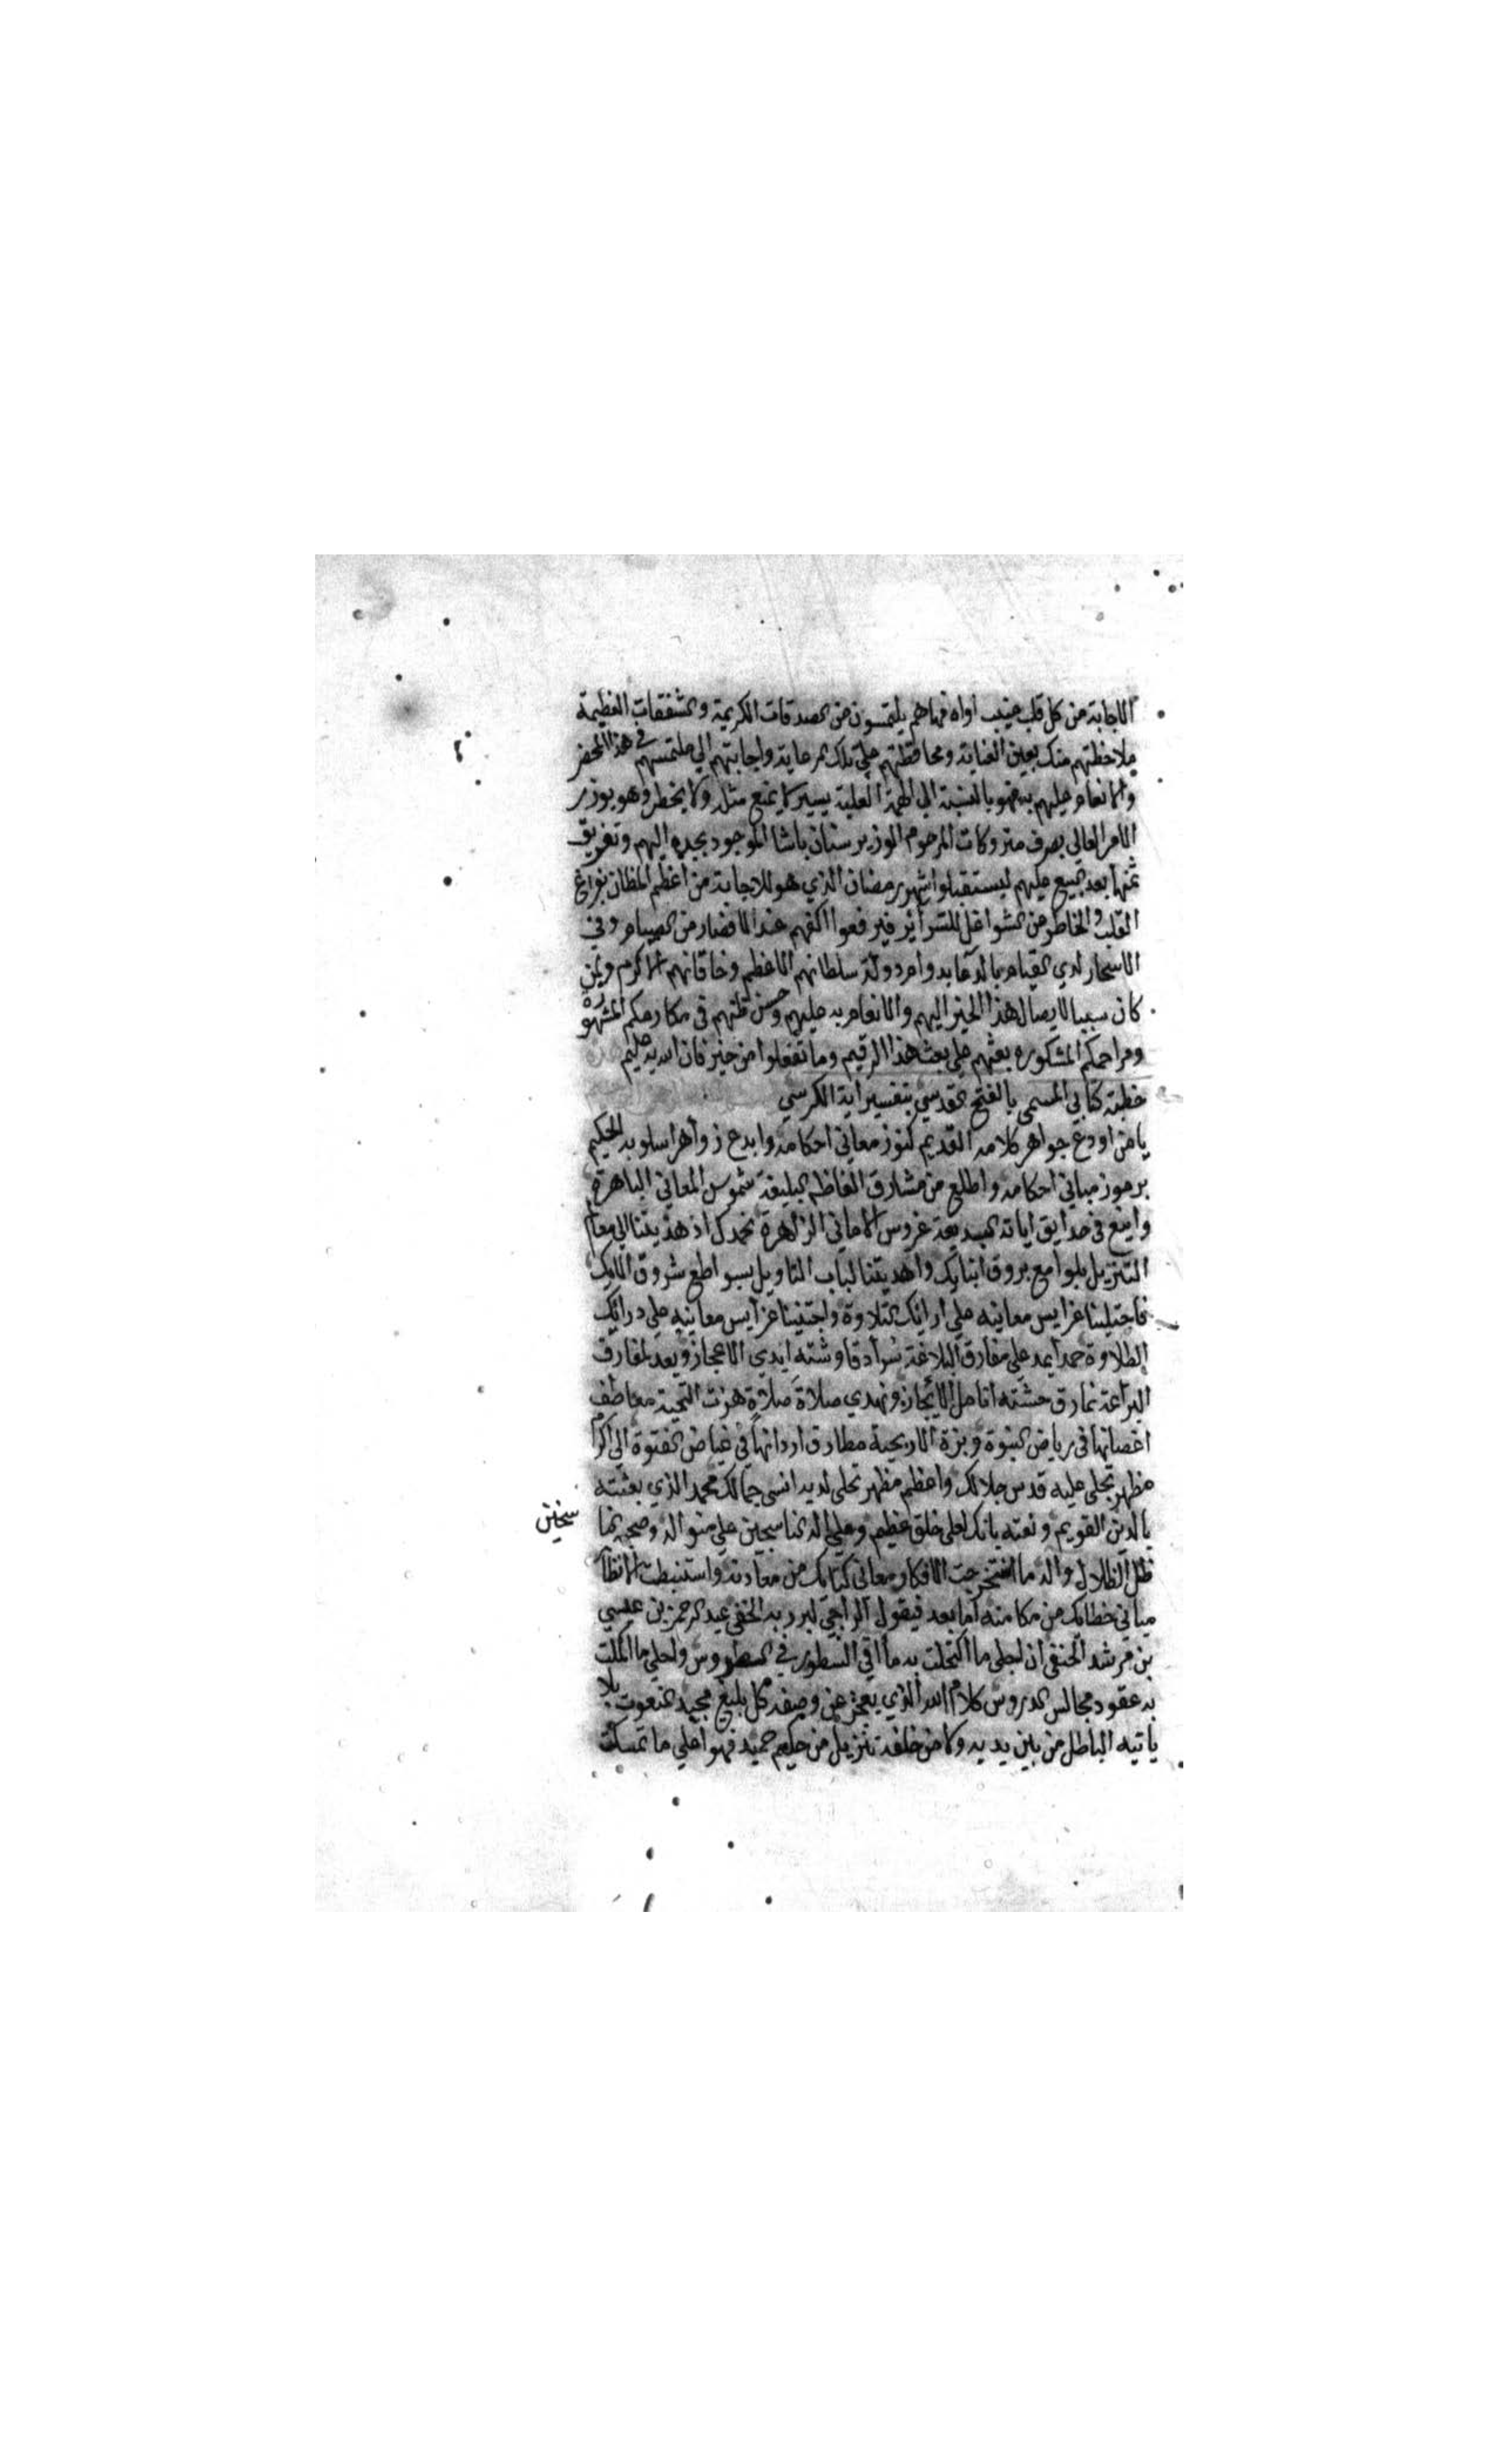 الاجابة من كل قلب منيب اواه فهاهم يلتمسون من الصدقات الكريمة والشفقات العظيمة
ملاحظتهم منك بعين العناية ومحافظتهم على تلك الرعاية واجابتهم الى ملتمسهم في هذا المحضر
والانعام عليهم به فهو بالنسبة الى الهمة العلية يسير لا يمنع مثله ولا يخطر وهو بوزر
الامر العالي بصرف متروكات المرحوم الوزير سنان باشا الموجود بجده اليهم وتفريق
ثمنها بعد البيع عليهم ليستقبلوا شهر رمضان الذي هو للاجابة من اعظم المظان بفراغ
القلب والخاطر من الشواغل للسراير فيرفعوا اكفهم عند الافطار من الصيام وفي
الاسحار لدي القيام بالدعا بدوام دولة سلطانهم الاعظم وخاقانهم الاكرم ولمن
كان سببا لايصال هذا الخير اليهم والانعام به عليهم وحسن ظنهم في مكارمكم المشهورة
ومراحمكم المشكوره بعثهم على بعث هذا الرقيم وما تفعلوا من خير فان الله به عليم
خطبة كتابي المسمى بالفتح القدسي بتفسير اية الكرسي
يا من اودع جواهر كلامه القديم كنوز معاني احكامه وابدع زواهر اسلوبه الحكيم
برموز مباني احكامه واطلع من مشارق الفاظه البليغة شموس المعاني الباهرة
واينع في حدايق اياته البديعة غروس الاماني الزاهرة نحمدك اذ هديتنا الى معالم
التنزيل بلوامع بروق انبايك واهديتنا لباب التاويل بسواطع شروق الايك
فاجتلينا عرايس معانيه على ارائك التلاوة واجتنينا غرايس معانيه على درائك
الطلاوة حمدا يمد على مفارق البلاغة سرادقا وشته ايدي الاعجاز ويعد لمفارق
البراعة نمارق حشته انامل الايجاز ونهدي صلاة صلاة هزت التحية معاطف
اغصانها في رياض النبوة وبزة الاريحية مطارف اردانها في غياض الفتوة الى اكرم
مظهر تجلى عليه قدس جلالك واعظم مظهر تجلى لديه انسى جمالك محمد الذي بعثته
بالدين القويم ونعته بانك لعلى خلق عظيم وعلى اله الناسجين على منواله وصحبه
سخين
ظل الظلال واله ما استخرجت الافكار معاني كتابك من معادنه واستنبطت الانظار
مباني خطابك من مكامنه اما بعد فيقول الراجي لبر ربه الخفي عبد الرحمن بن عيسى
بن مرشد الحنفي ان اجلى ما اكتحلت به مااقي السطور في الطروس واحلى ما اكللت
به عقود مجالس الدروس كلام الله الذي يعجز عن وصفه كل بليغ مجيد المنعوت بلا
ياتيه الباطل من بين يديه ولا من خلفه تنزيل من حكيم حميد فهو اعلى ما تمسكت